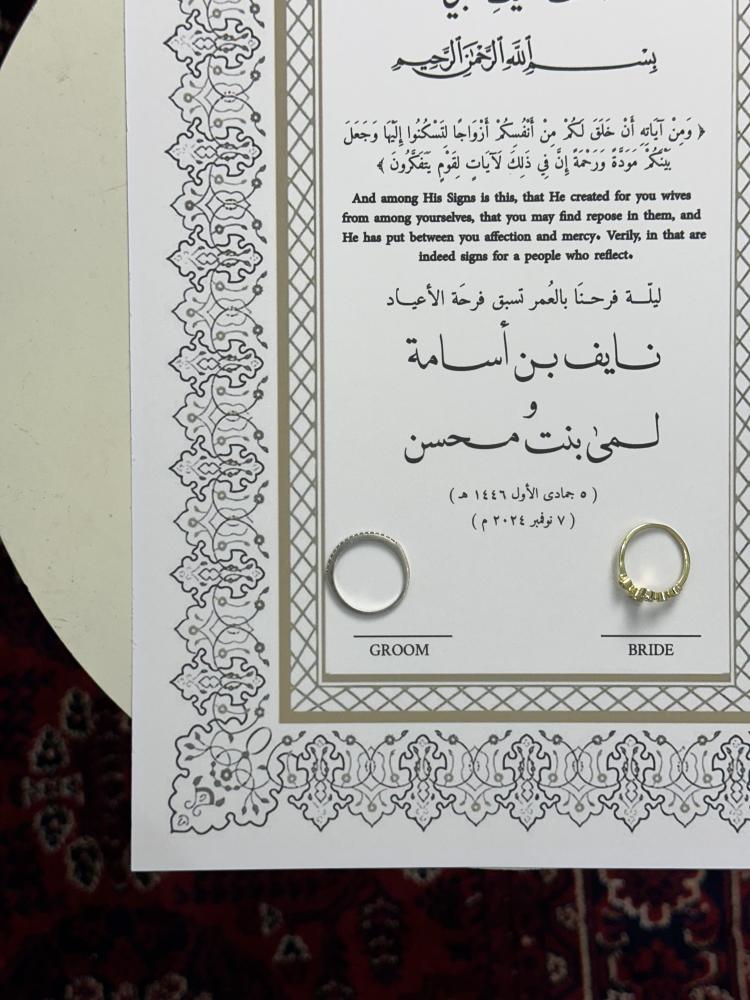 بِسْـــمِ ٱللَّهِ ٱلرَّحْمَٰنِ ٱلرَّحِيـمِ
﴿ وَمِنْ آيَاتِهِ أَنْ خَلَقَ لَكُمْ مِنْ أَنْفُسِكُمْ أَزْوَاجًا لِتَسْكُنُوا إِلَيْهَا وَجَعَلَ
بَيْنَكُمْ مَوَدَّةً وَرَحْمَةً إِنَّ فِي ذَلِكَ لَآيَاتٍ لِقَوْمٍ يَتَفَكَّرُونَ ﴾
And among His Signs is this, that He created for you wives
from among yourselves, that you may find repose in them, and
He has put between you affection and mercy. Verily, in that are
indeed signs for a people who reflect.
ليلـــة فرحـــنَا بالعُمر تسبق فرحَة الأعيـــاد
نـــايف بـــن أســـامة
و
لـــمىٰ بنت محـــسن
( ٥ جمادى الأول ١٤٤٦ هـ )
( ٧ نوفمبر ٢٠٢٤ م )
GROOM BRIDE